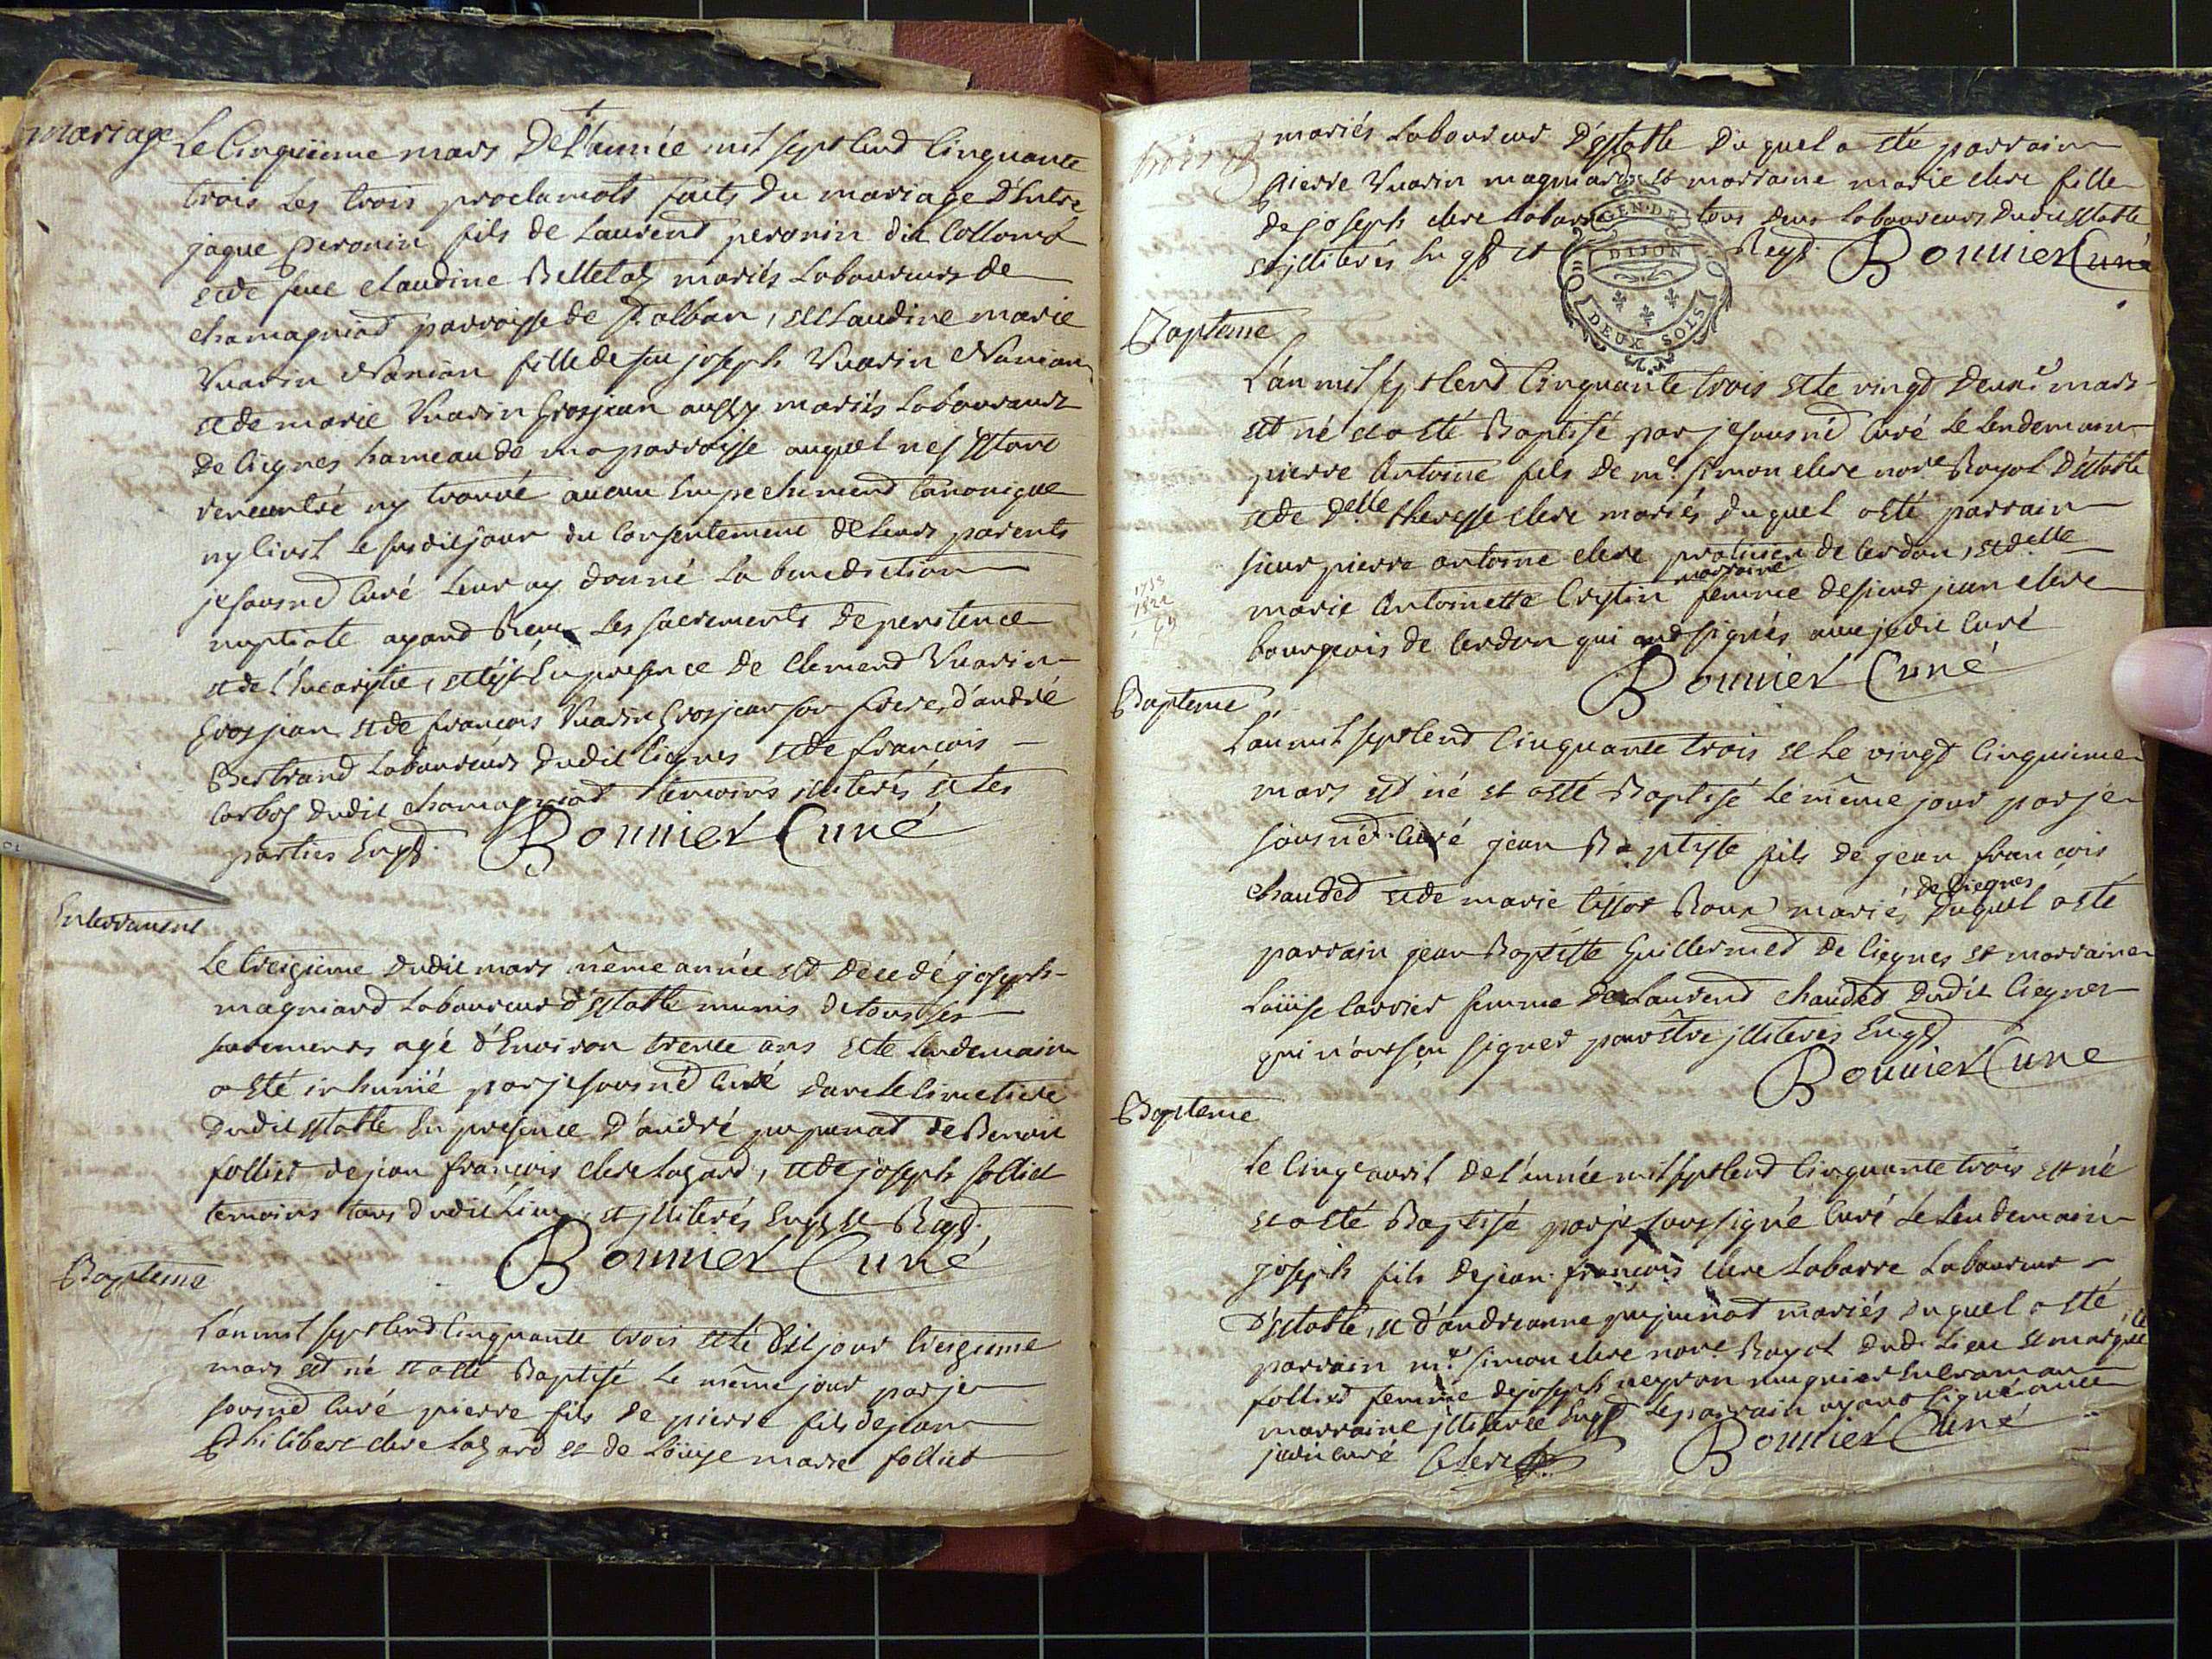 mariage
Le Cinquième mars De l'année mil sept Cend Cinquante
trois Les trois proclamats faits Du mariage D'Entre
jaque peronin fils de Laurend peronin dit Collomb
et de feue claudine Belletaz mariés Laboureurs de
chamagniat parroisse de St alban, et Claudine marie
Vuarin fille de feu joseph Vuarin
et de marie Vuarin Grosjean aussy mariés Laboureurs
de Ciegnes hameau de ma parroisse auquel nes'Estant
rencontré ny trouvé aucun Empechemend Canonique
ny Civil Le susdit jour du Consentement De Leurs parents
je sousné Curé Leur ay donné La benediction
nuptiale ayand Reçu Les sacrements De penitence
et de l'Eucaristie, En presence De Clemend Vuarin
Grosjean et de françois Vuarin Grosjean son frere, d'andré
Bertrand Laboureurs Dudit Ciegnes et de françois
Dudit chamagniat temoins illiterés et Les
parties Enqs. Bonnier Curé
Enterrement
Le treizieme Dudit mars même année est Decedé joseph
magniard Laboureur d'Estable munis De tous ses
sacrements agé d'Environ trente ans et Le Lendemain
a Eté inhumé par je sousné Curé dans Le Cimetiere
Dudit Estable En presence D'andré pupunat de Benoit
folliet de jean françois clerc Lazard, et de joseph folliet
temoins tous Dudit Lieu, et illiterés Enqs et Reqs.
Bonnier Curé
Bapteme
L'an mil sept Cend Cinquante trois et Le Dit jour treizieme
mars est né et a Eté Baptisé Le même jour par je
sousné Curé pierre fils De pierre fils de jean
Philibert clerc Lazard et de Loüise marie folliet
mariés Laboureur D'Estable Duquel a Eté parrain
pierre Vuarin magniard et marraine marie clerc fille
De joseph clerc Labarre tous Deux Laboureurs Dudit Estable
et illiterés Enqs et Reqs. Bonnier Curé
GEN. DE
DIJON
DEUX SOLS
Bapteme
L'an mil sept Cend Cinquante trois et Le vingt Deuxe mars
est né et a Eté Baptisé par je sousné Curé Le Lendemain
pierre Antoine fils De me. simon clerc nore Royal D'Estable
et de Delle theresse clerc mariés Duquel a Eté parrain
sieur pierre antoine clerc praticien de Cerdon, et delle
marraine
marie Antoinette Crystin femme de sieur jean clerc
bourgeois de Cerdon qui ond signés avec je dit Curé
1753
Bonnier Curé
Bapteme
L'an mil sept Cend Cinquante trois et Le vingt Cinquieme
mars est né et a Eté Baptisé Le même jour par je
sousné Curé jean Baptyste fils de jean françois
de Ciegnes
chauded et de marie tissot Roux mariés, Duquel a Eté
parrain jean Baptiste Guillermed De Ciegnes et marraine
Loüise Carrier femme De Laurend chauded Dudit Ciegnes
qui n'ont sçu signer pour être illiterés Enqs
Bonnier Curé
Bapteme
Le Cinqe avril De l'année mil sept Cend Cinquante trois est né
et a Eté Baptisé par je soussigné Curé Le Lendemain
joseph fils De jean françois clerc Labarre Laboureur
D'Estable, et d'andreanne pupunat mariés Duquel a Eté
parrain me. simon clerc nore Royal Dud. Lieu et
folliet femme De joseph neyron
marraine illiterée Enqs Le parrain ayant signé avec
je dit Curé Clerc Bonnier Curé